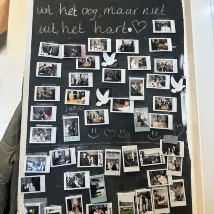 uit het oog, maar niet
uit het hart.♡